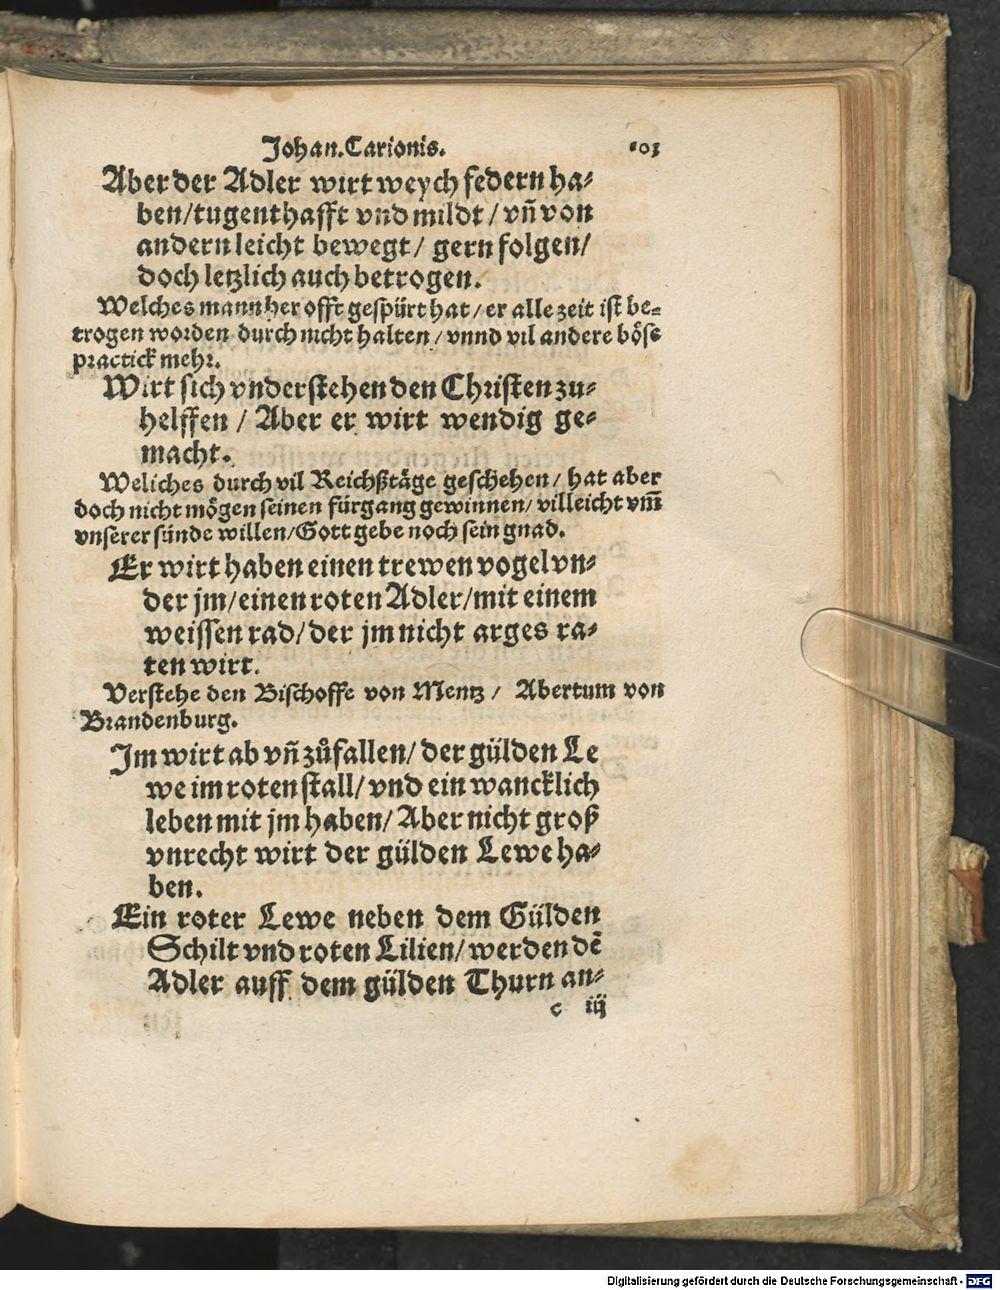 Johan. Carionis. 103
Aber der Adler wirt weych federn ha⸗
ben/tugenthafft vnd mildt/ vñ von
andern leicht bewegt/ gern folgen/
doch letzlich auch betrogen.
Welches mann her offt gespürt hat/ er alle zeit ist be⸗
trogen worden durch nicht halten/ vnnd vil andere böse
practick mehr.
Wirt sich vnderstehen den Christen zu⸗
helffen / Aber er wirt wendig ge⸗
macht.
Weliches durch vil Reichßtäge geschehen/ hat aber
doch nicht mögen seinen fürgang gewinnen/ villeicht vm̃
vnserer sünde willen/Gott gebe noch sein gnad.
Er wirt haben einen trewen vogel vn⸗
der jm/einen roten Adler/mit einem
weissen rad/der jm nicht arges ra⸗
ten wirt.
Verstehe den Bischoffe von Mentz / Abertum von
Brandenburg.
Im wirt ab vñ zůfallen/ der gülden Le
we im roten stall/ vnd ein wancklich
leben mit jm haben/ Aber nicht groß
vnrecht wirt der gülden Lewe ha⸗
ben.
Ein roter Lewe neben dem Gülden
Schilt vnd roten Lilien/ werden dē
Adler auff dem gülden Thurn an⸗
c iij
Digitalisierung gefördert durch die Deutsche Forschungsgemeinschaft - DFG